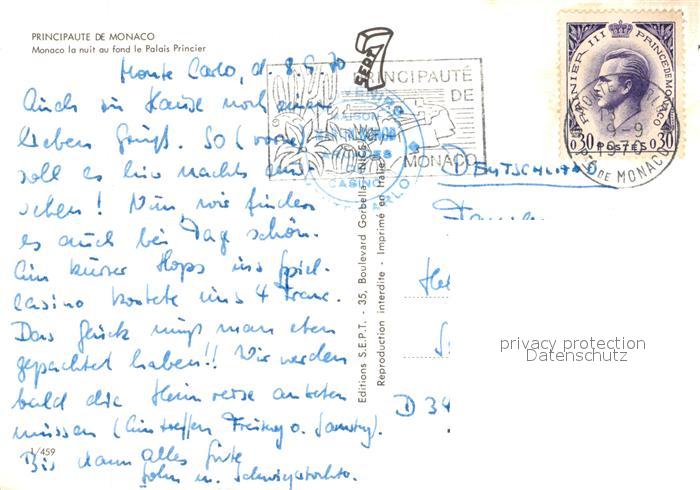 PRINCIPAUTE DE MONACO
Monaco la nuit au fond le Palais Princier
Monte Carlo, d. 8.9.70
Auch zu Hause noch einen
lieben Gruß. So (vorne)
soll es hier nachts aus-
sehen! Nun wir finden
es auch bei Tag schön.
Ein kurzer Hops ins Spiel-
casino kostete uns 4 Franc.
Das Glück muß man eben
gepachtet haben!! Wir werden
bald die Heimreise antreten
müssen (Eintreffen Freitag o. Samstag).
Bis dann alles Gute
Sohn u. Schwiegertochter.
1/459
Editions S.E.P.T. - 35, Boulevard Gorbella - NICE
Reproduction interdite - Imprimé en Italie
SEPT
PRINCIPAUTÉ
DE
MONACO
CASINO
RAINIER III PRINCE DE MONACO
0,30 POSTES 0,30
9-9
1970
PTE DE MONACO
DEUTSCHLAND
D 34
privacy protection
Datenschutz